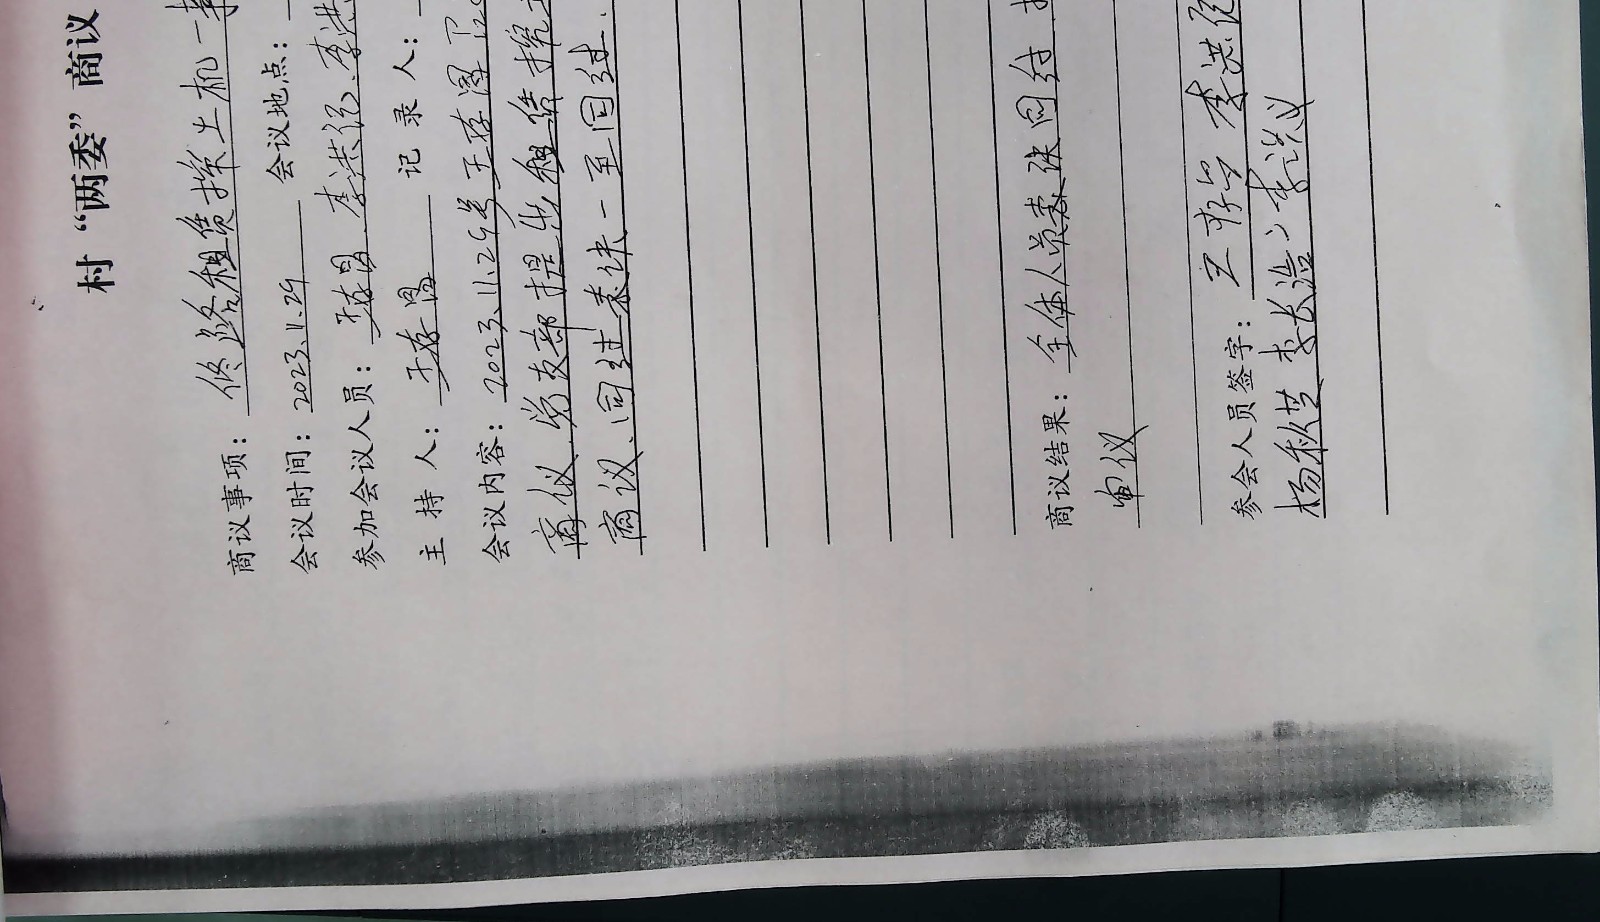 村“两委”商议
商议事项：修路租赁挖土机一事
会议时间：2023.11.29 会议地点：
参加会议人员：王存周、李洪
主持人：王存周 记录人：
会议内容：2023.11.29号王存周
商议、党支部提出租赁挖
商议、同过表决一至同过.
商议结果：全体人员表决同过
审议
参会人员签字：李洪
杨秋芝 李长浩 李洪义